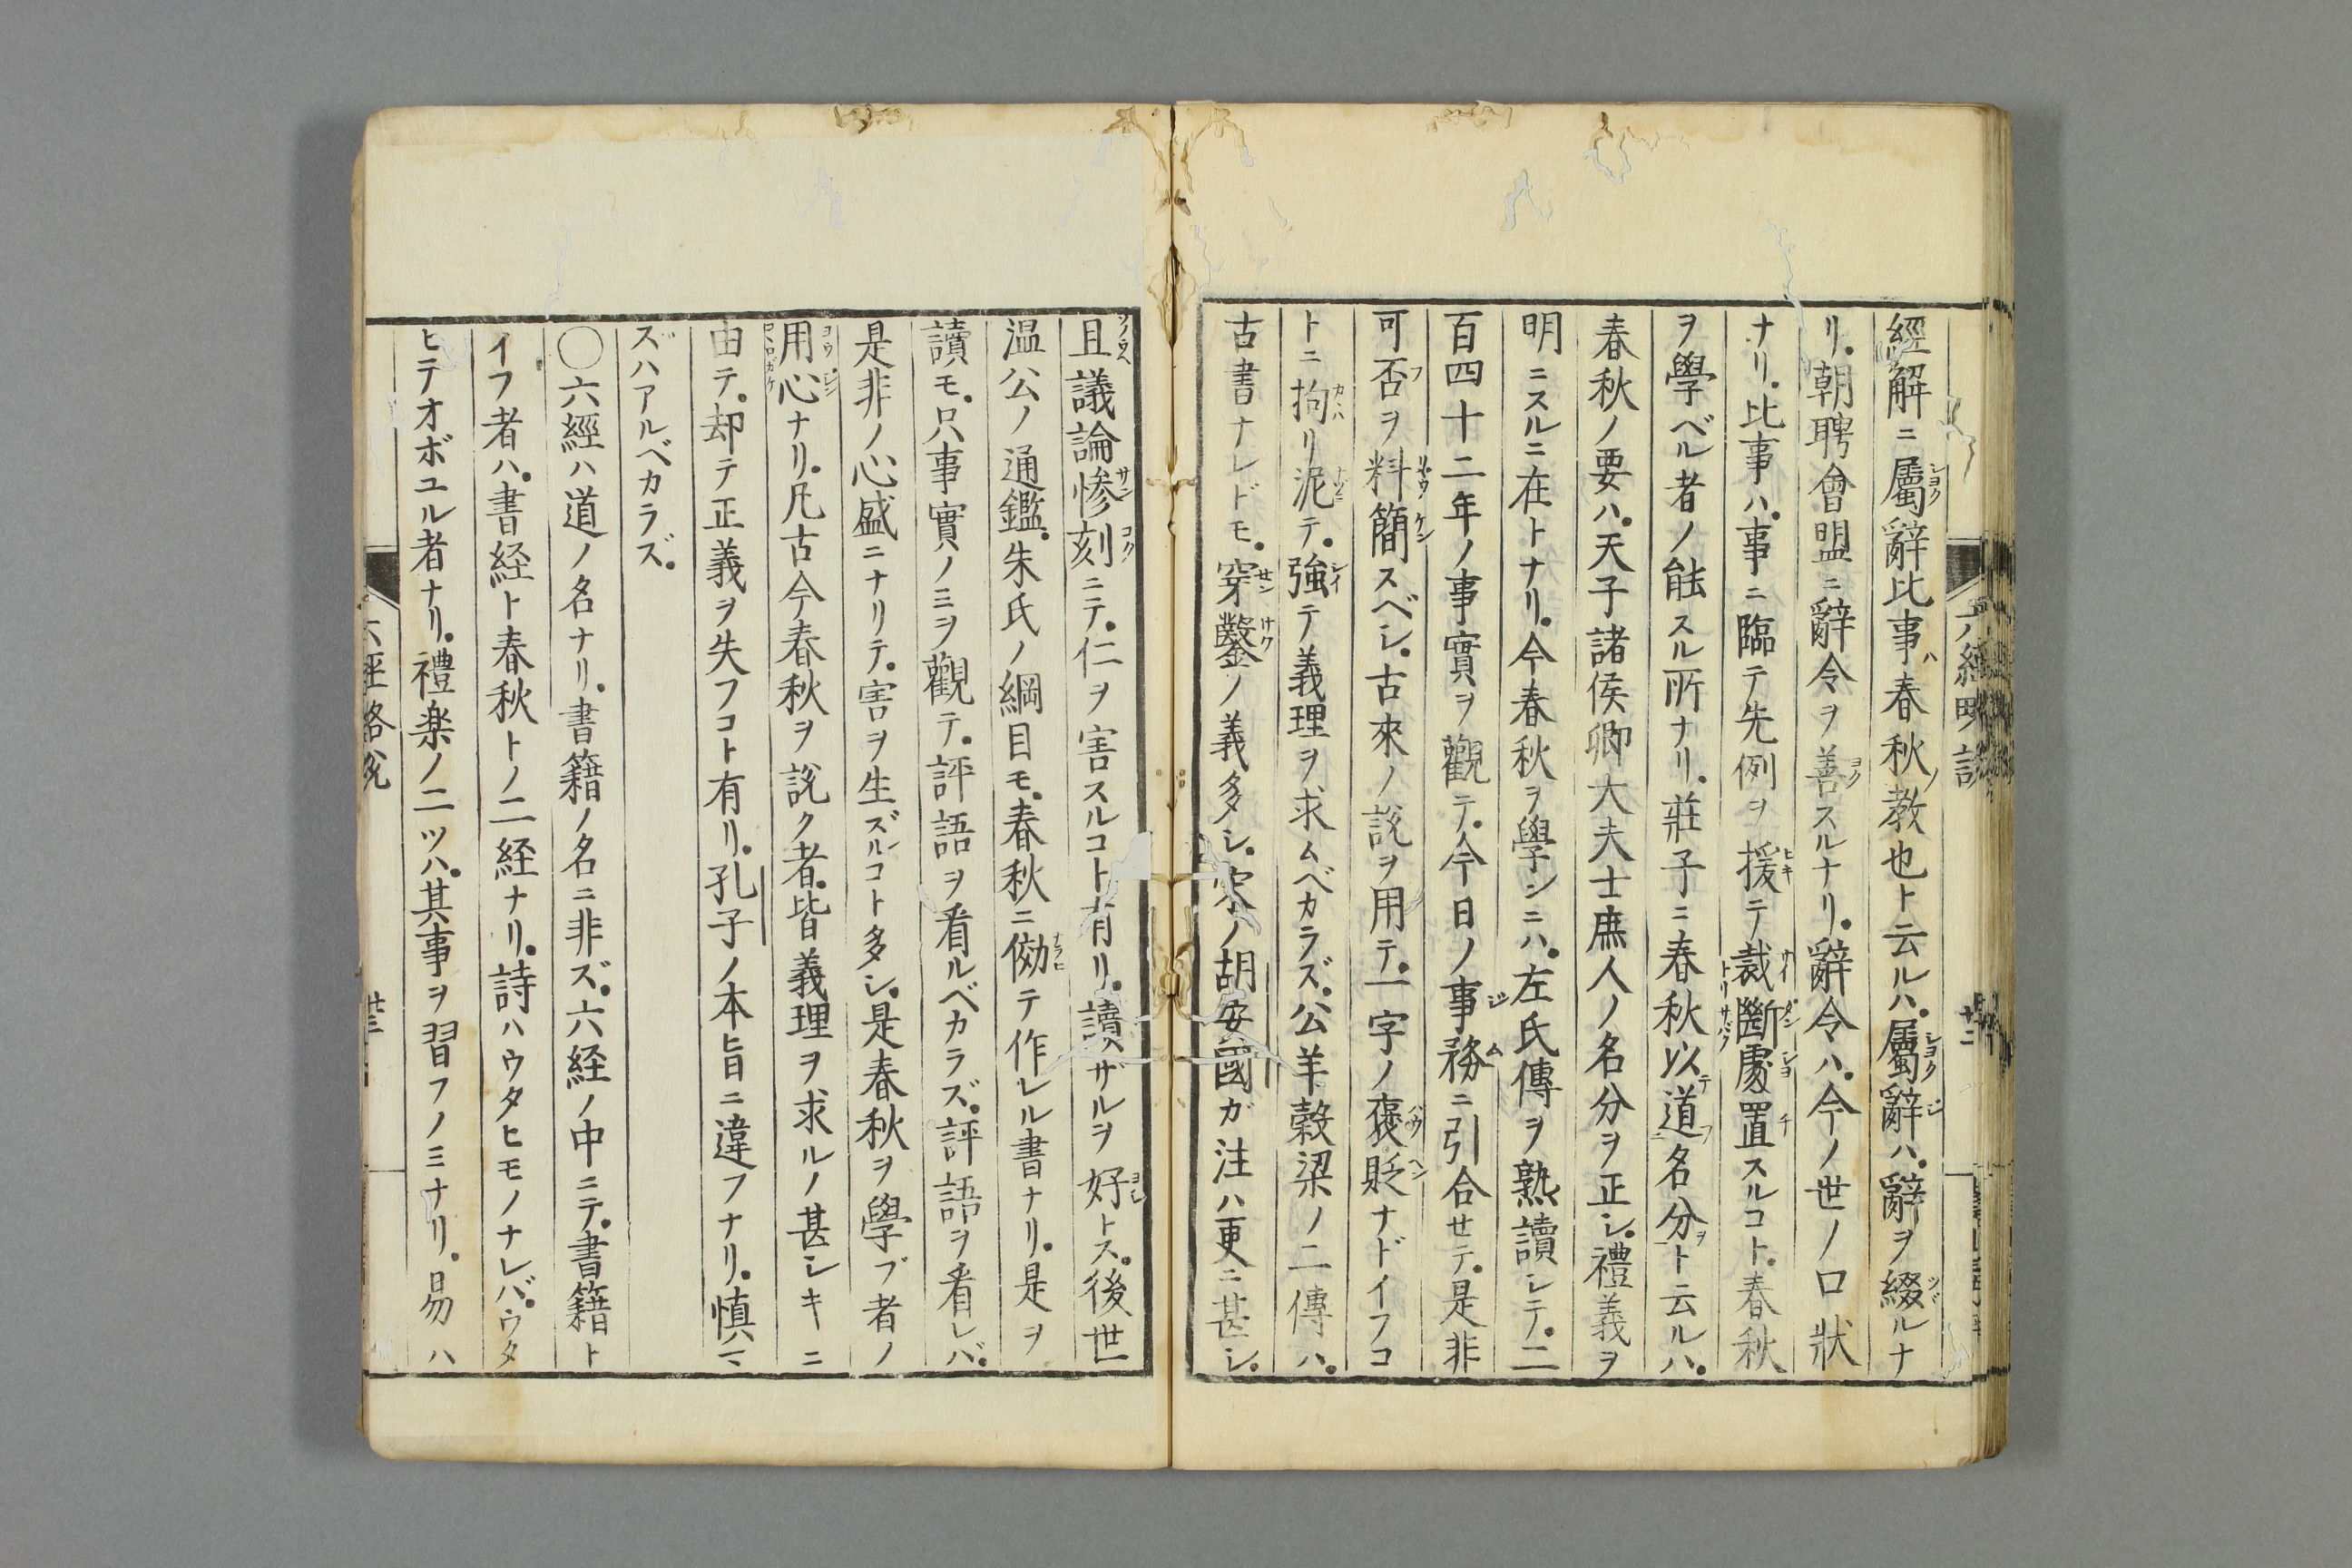 經解ニ屬辭比事ハ春秋ノ教也ト云ルハ。屬辭ハ。辭ヲ綴ルナ
リ。朝聘會盟ニ辭令ヲ善スルナリ。辭令ハ。今ノ世ノ口狀
ナリ。比事ハ。事ニ臨テ先例ヲ援テ裁斷處置スルコト。春秋
ヲ學ベル者ノ能スル所ナリ。莊子ニ春秋以道名分ト云ルハ。
春秋ノ要ハ。天子諸侯卿大夫士庶人ノ名分ヲ正シ。禮義ヲ
明ニスルニ在トナリ。今春秋ヲ學ンニハ。左氏傳ヲ熟讀シテ。二
百四十二年ノ事實ヲ觀テ。今日ノ事務ニ引合セテ。是非
可否ヲ料簡スベシ。古來ノ説ヲ用テ。一字ノ褒貶ナドイフコ
トニ拘リ泥テ。強テ義理ヲ求ムベカラズ。公羊穀梁ノ二傳ハ。
古書ナレドモ。穿鑿ノ義多シ。宋ノ胡安國ガ注ハ更ニ甚シ。
且議論惨刻ニテ。仁ヲ害スルコト有リ。讀ザルヲ好トス。後世
温公ノ通鑑。朱氏ノ綱目モ。春秋ニ傚テ作レル書ナリ。是ヲ
讀モ。只事實ノミヲ觀テ。評語ヲ看ルベカラズ。評語ヲ看レバ。
是非ノ心盛ニナリテ。害ヲ生ズルコト多シ。是春秋ヲ學ブ者ノ
用心ナリ。凡古今春秋ヲ説ク者。皆義理ヲ求ルノ甚シキニ
由テ。却テ正義ヲ失フコト有リ。孔子ノ本旨ニ違フナリ。慎マ
ズハアルベカラズ。
〇六經ハ道ノ名ナリ。書籍ノ名ニ非ズ。六経ノ中ニテ。書籍ト
イフ者ハ。書経ト春秋トノ二経ナリ。詩ハウタヒモノナレバ。ウタ
ヒテオボユル者ナリ。禮楽ノ二ツハ。其事ヲ習フノミナリ。易ハ
六経略説